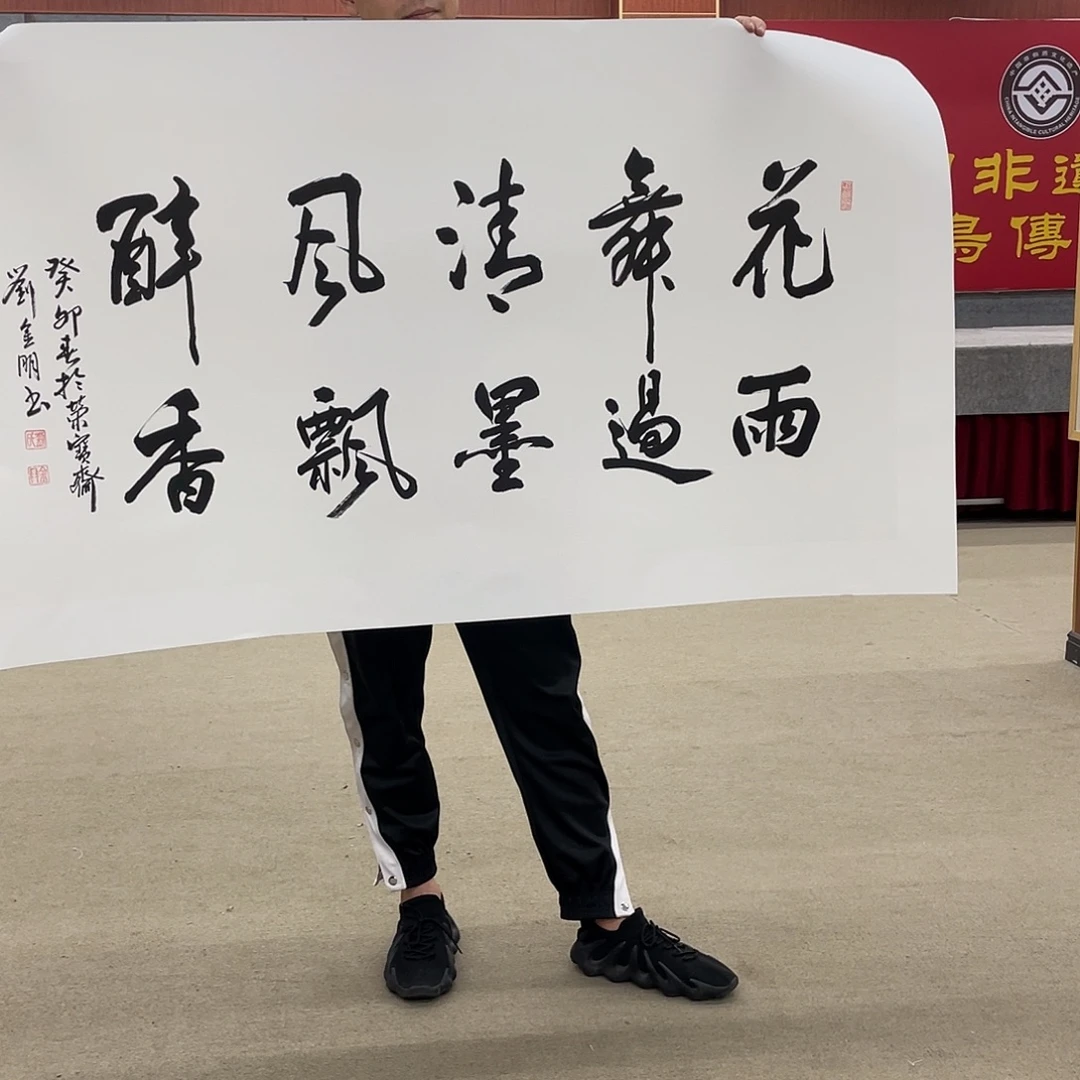 花舞清風醉
雨過墨飄香
癸卯春於榮寶齋
劉金明书
CHINA INTANGIBLE CULTURAL HERITAGE
非遺
島傳